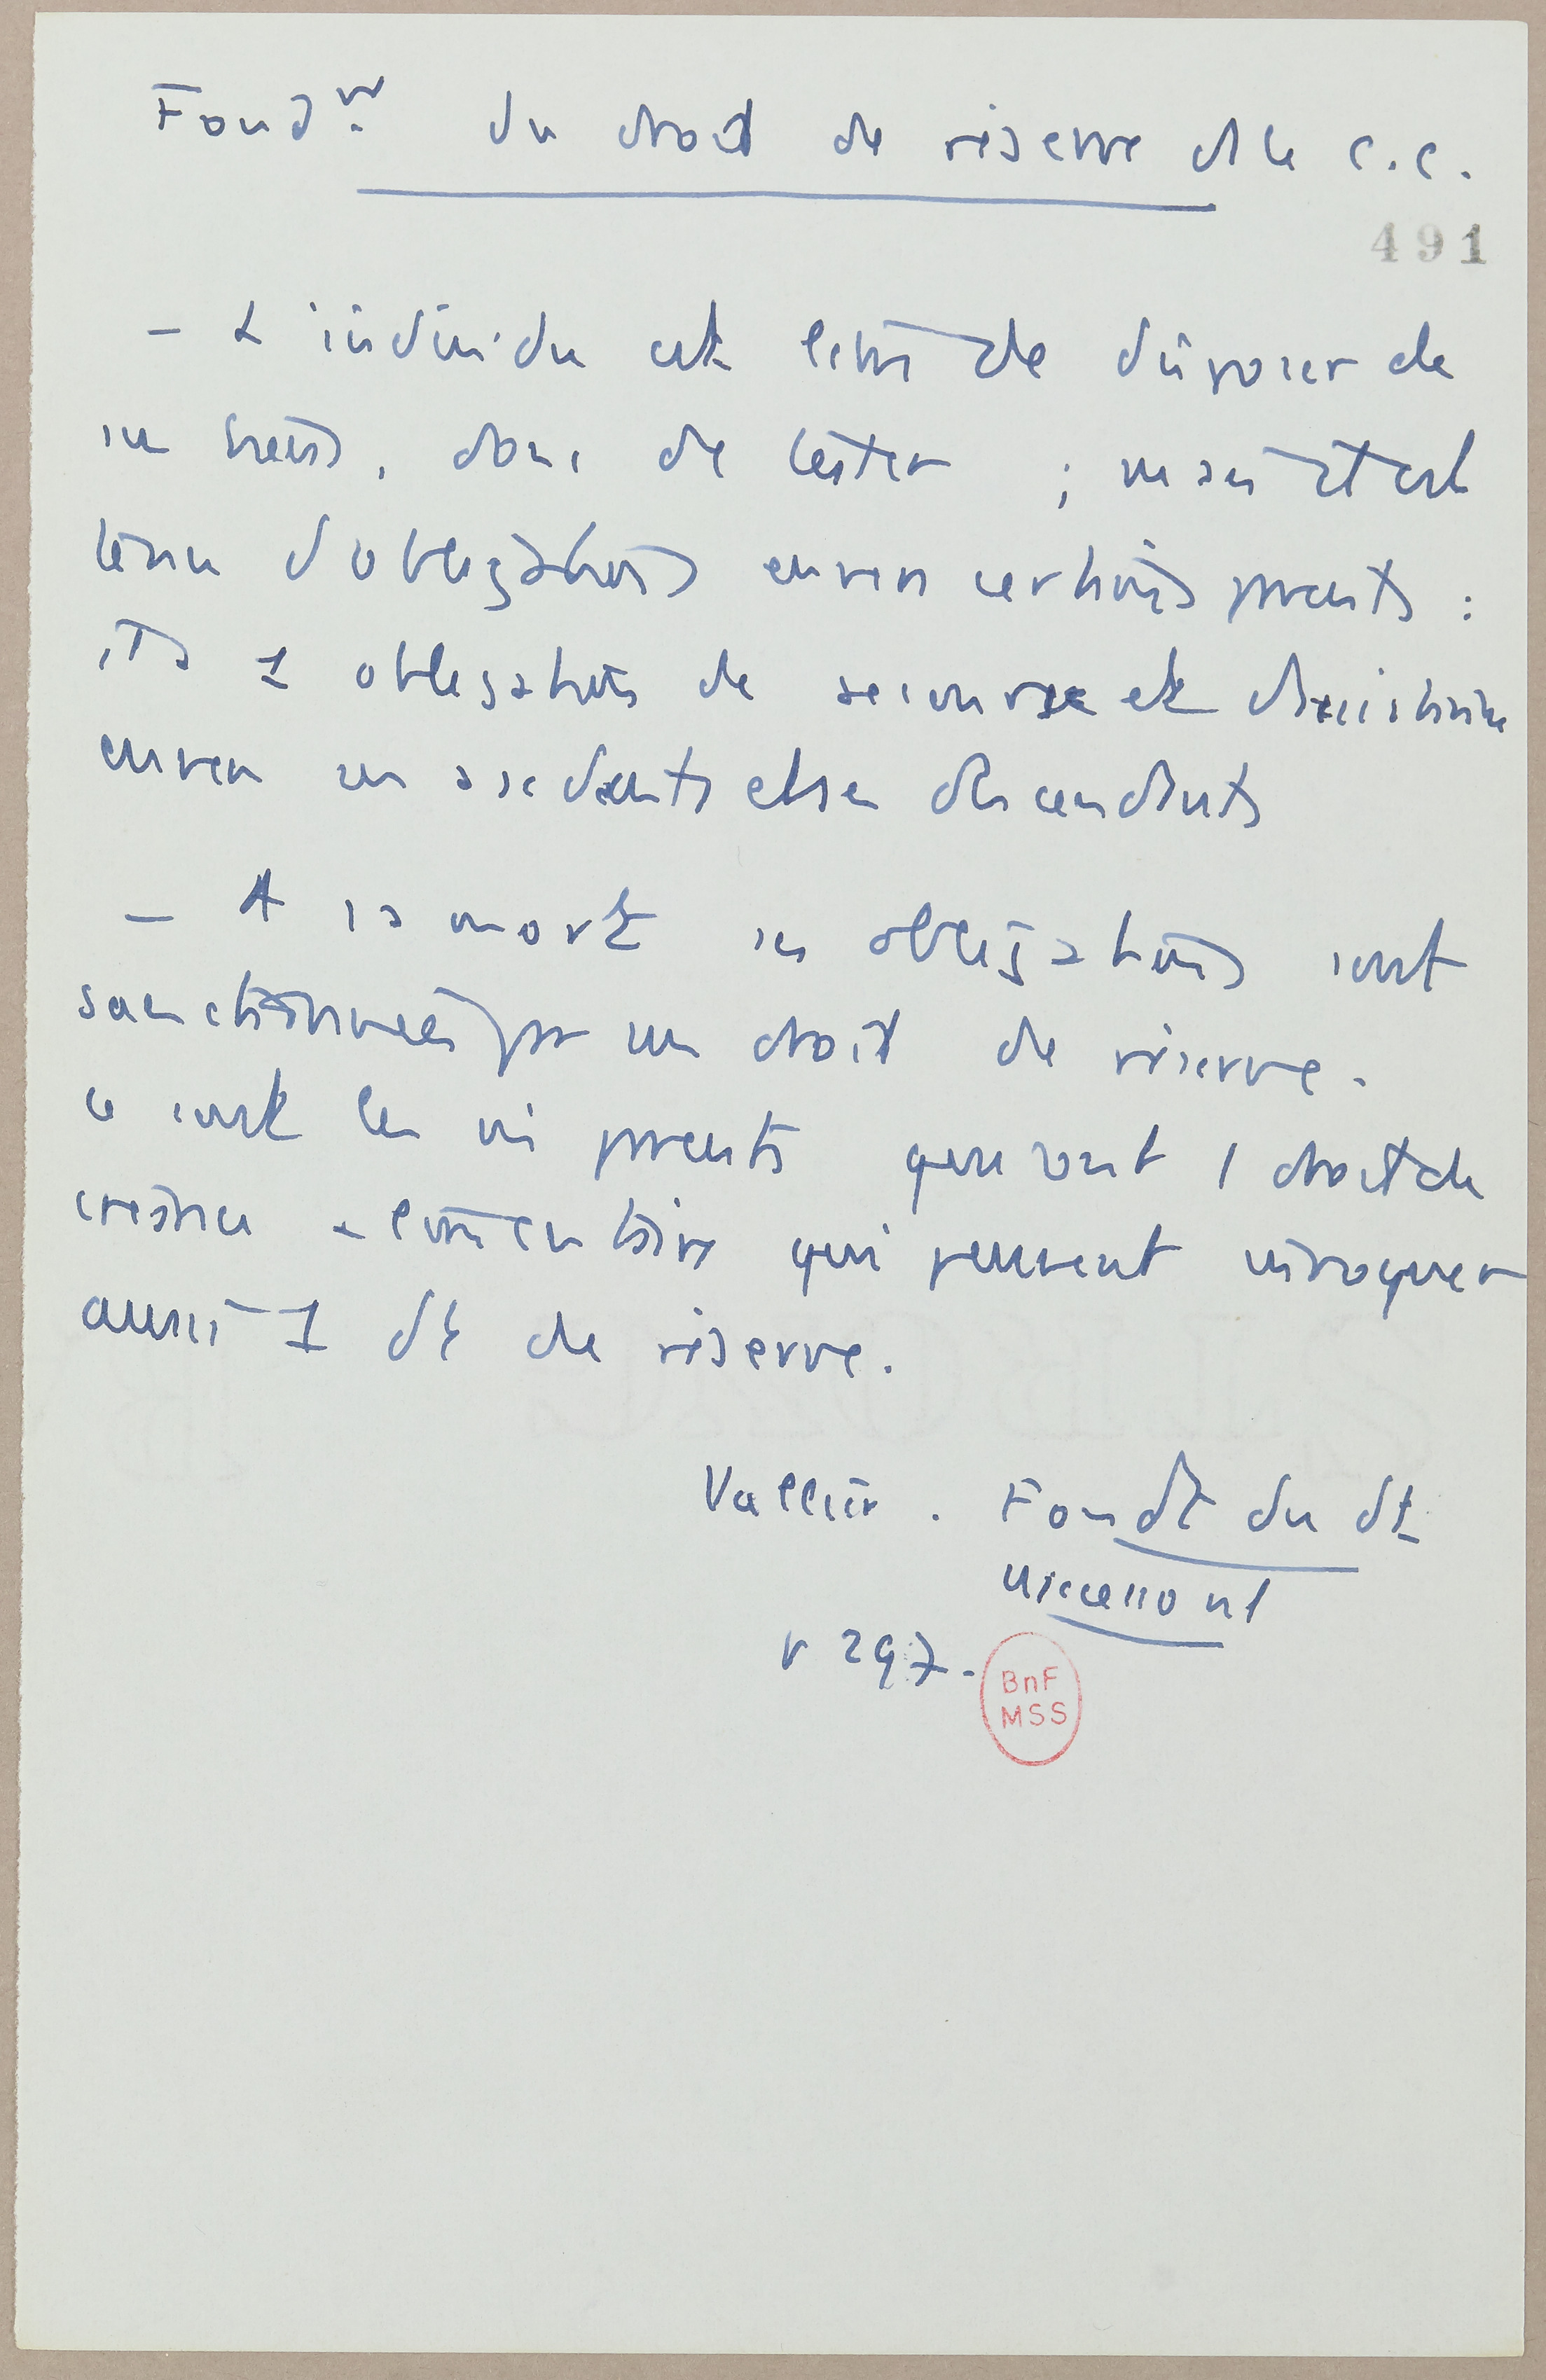 Fondnt du droit de réserve ds le C.C.
491
– L'individu est libre de disposer de
ses biens, donc de tester ; mais il est
tenu d'obligations envers certains parents :
il a 1 obligation de secours et d'assistance
envers ses ascendants et ses descendants
– A sa mort ses obligations sont
sanctionnées par un droit de réserve.
Ce sont les mêmes parents qui ont 1 droit de
créance alimentaire qui peuvent invoquer
aussi 1 dt de réserve.
Vallier. Fondt du dt
successoral
p 297.
BnF
MSS